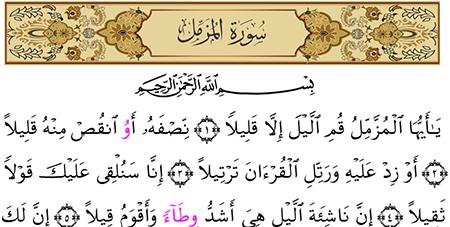 سُورَةُ المُزَّمِّل
بِسْمِ ٱللَّهِ ٱلرَّحْمَٰنِ ٱلرَّحِيمِ
يَٰٓأَيُّهَا ٱلْمُزَّمِّلُ قُمِ ٱلَّيْلَ إِلَّا قَلِيلاً ﴿١﴾ نِّصْفَهُۥٓ أَوُ ٱنقُصْ مِنْهُ قَلِيلاً
﴿٢﴾ أَوْ زِدْ عَلَيْهِ وَرَتِّلِ ٱلْقُرْءَانَ تَرْتِيلاً ﴿٣﴾ إِنَّا سَنُلْقِى عَلَيْكَ قَوْلاً
ثَقِيلاً ﴿٤﴾ إِنَّ نَاشِئَةَ ٱلَّيْلِ هِىَ أَشَدُّ وِطَآءً وَأَقْوَمُ قِيلاً ﴿٥﴾ إِنَّ لَكَ